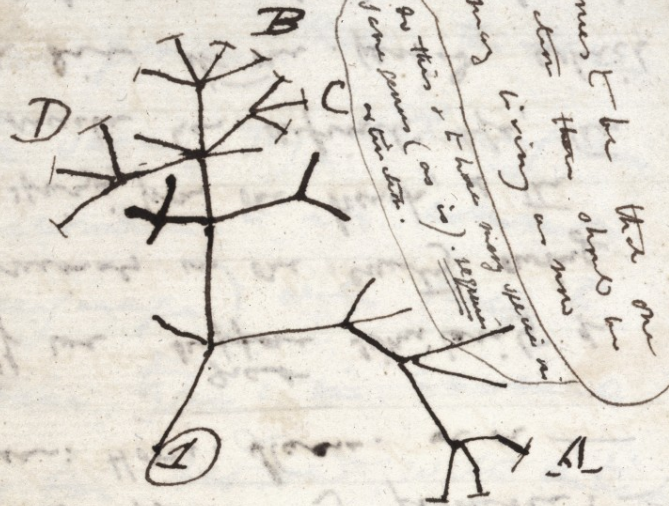 B
D
C
1
A
must be that one
then should be
living as now
this & to have many species in
same genus (as is). requires
extinction.